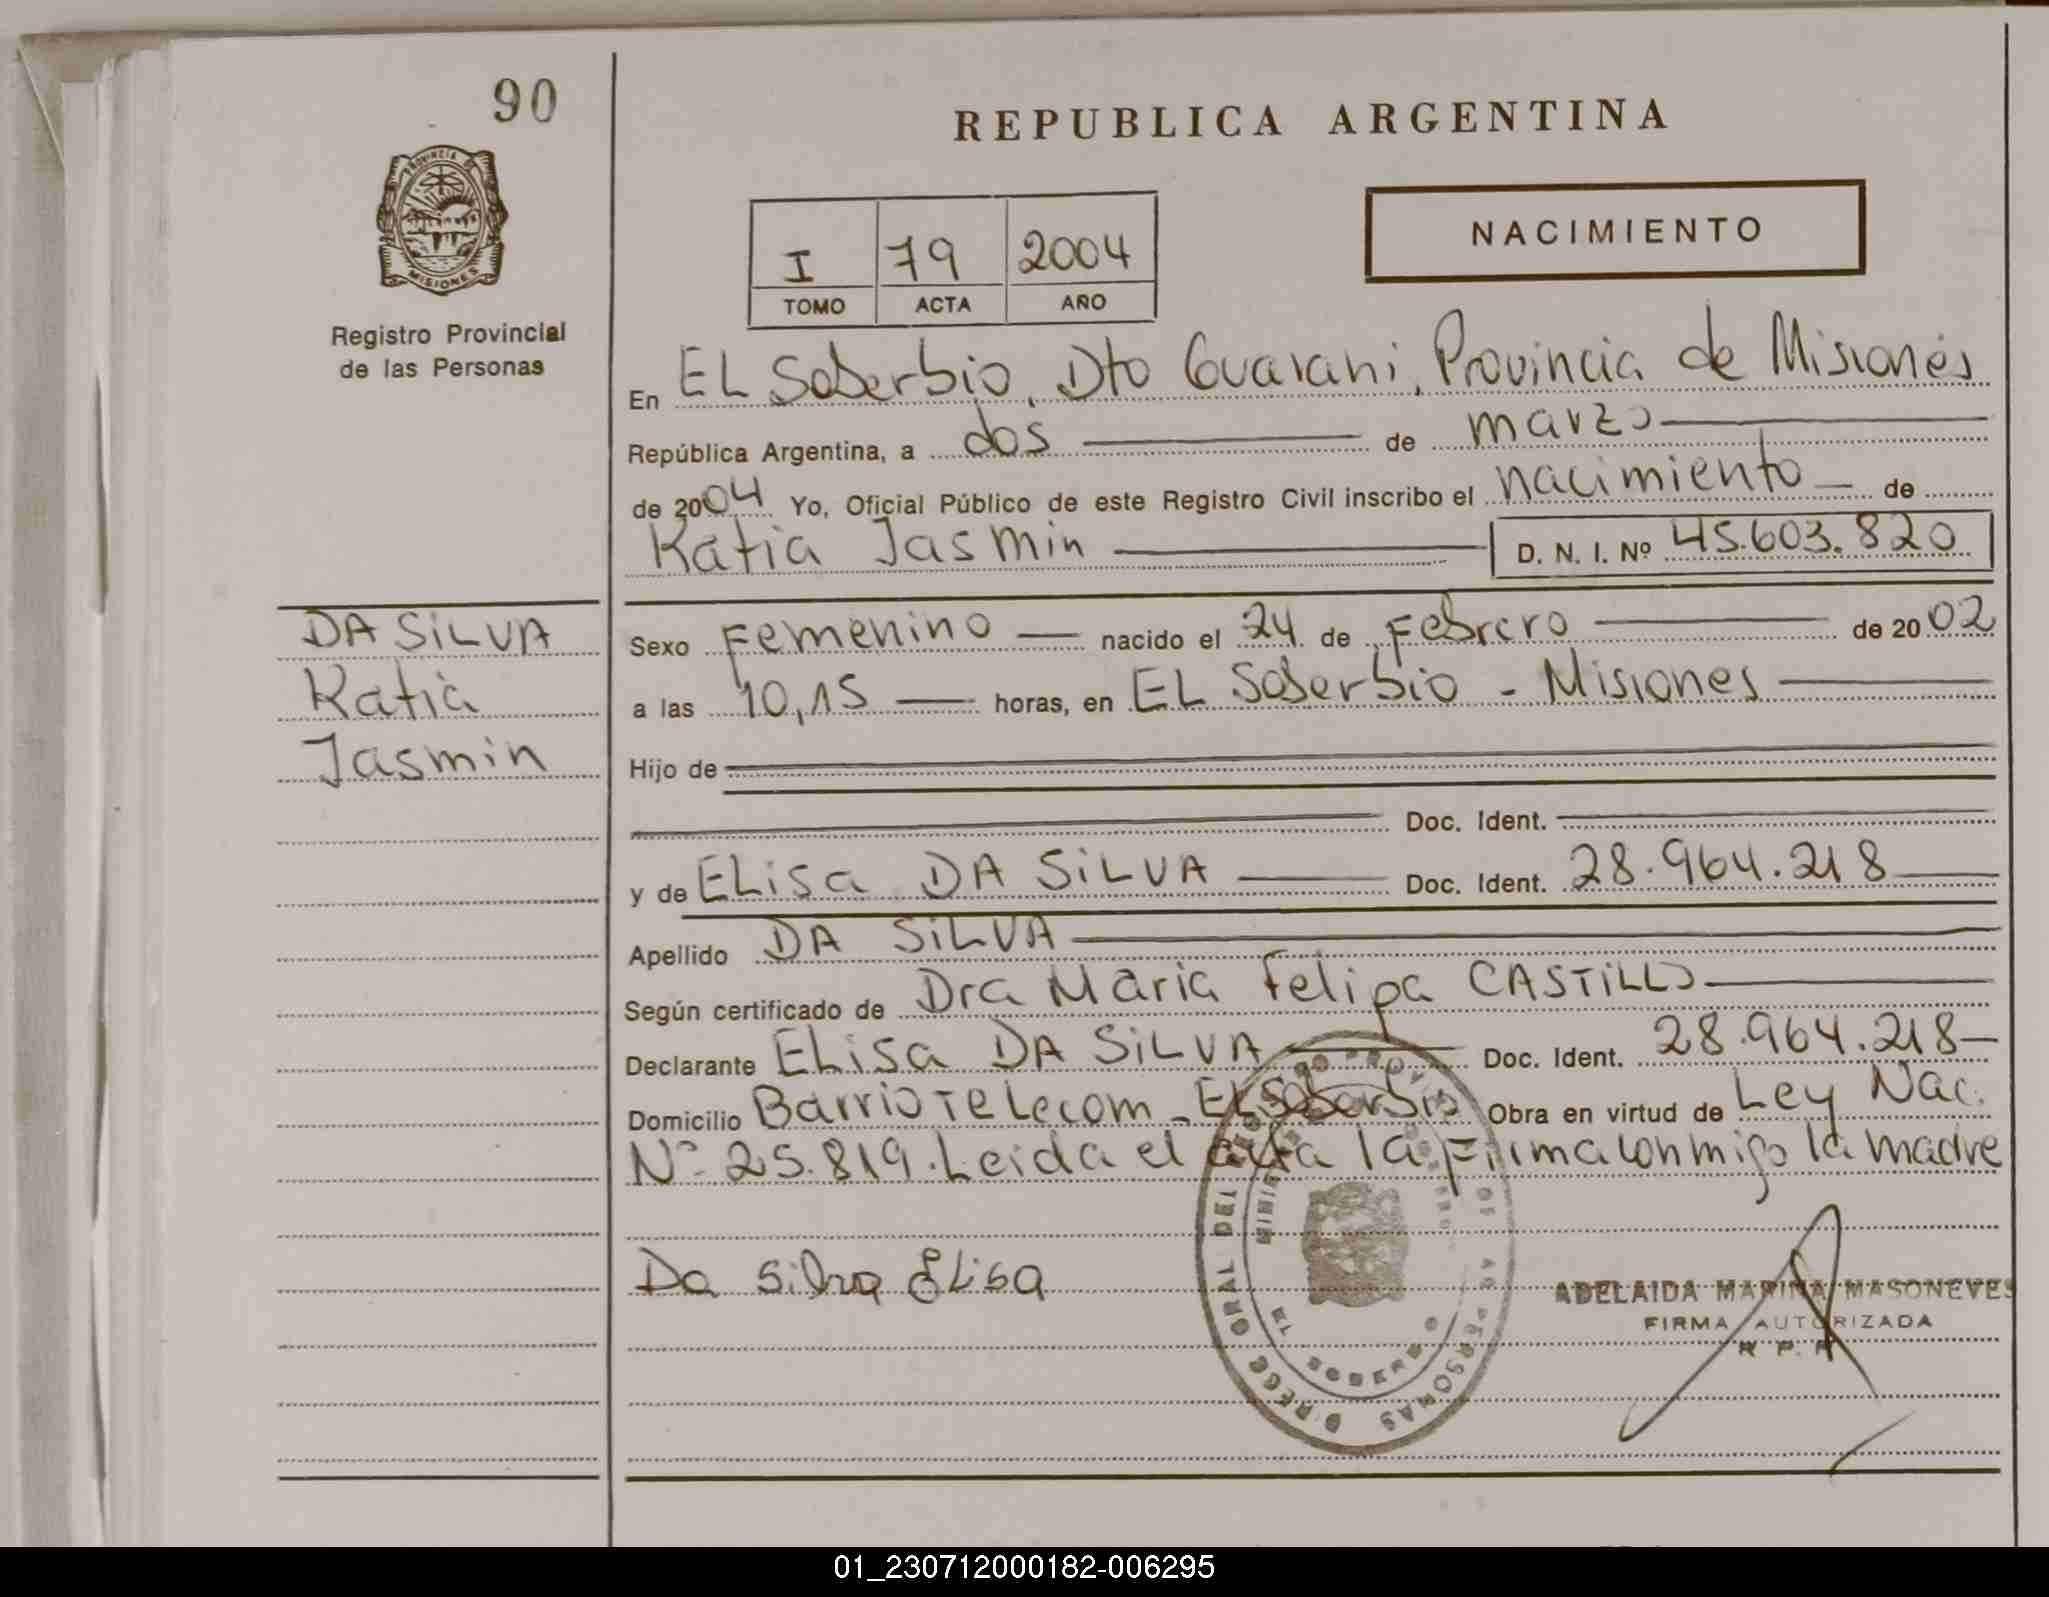 90
PROVINCIA DE
MISIONES
Registro Provincial
de las Personas
REPUBLICA ARGENTINA
NACIMIENTO
I 79 2004
TOMO ACTA AÑO
En EL Soberbio, Dto Guarani, Provincia de Misiones
República Argentina, a dos de marzo
de 2004 Yo, Oficial Público de este Registro Civil inscribo el nacimiento de
Katia Jasmin D. N. I. Nº 45.603.820
DA SiLVA
Katia
Jasmin
Sexo Femenino nacido el 24 de Febrero de 2002
a las 10,15 horas, en EL Soberbio - Misiones
Hijo de
Doc. Ident.
y de ELisa DA SiLVA Doc. Ident. 28.964.218
Apellido DA SiLVA
Según certificado de Dra Maria Felipa CASTiLLO
Declarante ELisa DA SiLVA Doc. Ident. 28.964.218
Domicilio Barrio TeLecom - EL Soberbio Obra en virtud de Ley Nac.
Nº 25.819. Leida el acta la Firma conmigo la madre
Da Silva ELisa
ADELAIDA MARINA MASONEVES
FIRMA AUTORIZADA
R. P. P.
DIRECC GRAL DEL PERSONAS
EL SOBERBIO
01_230712000182-006295